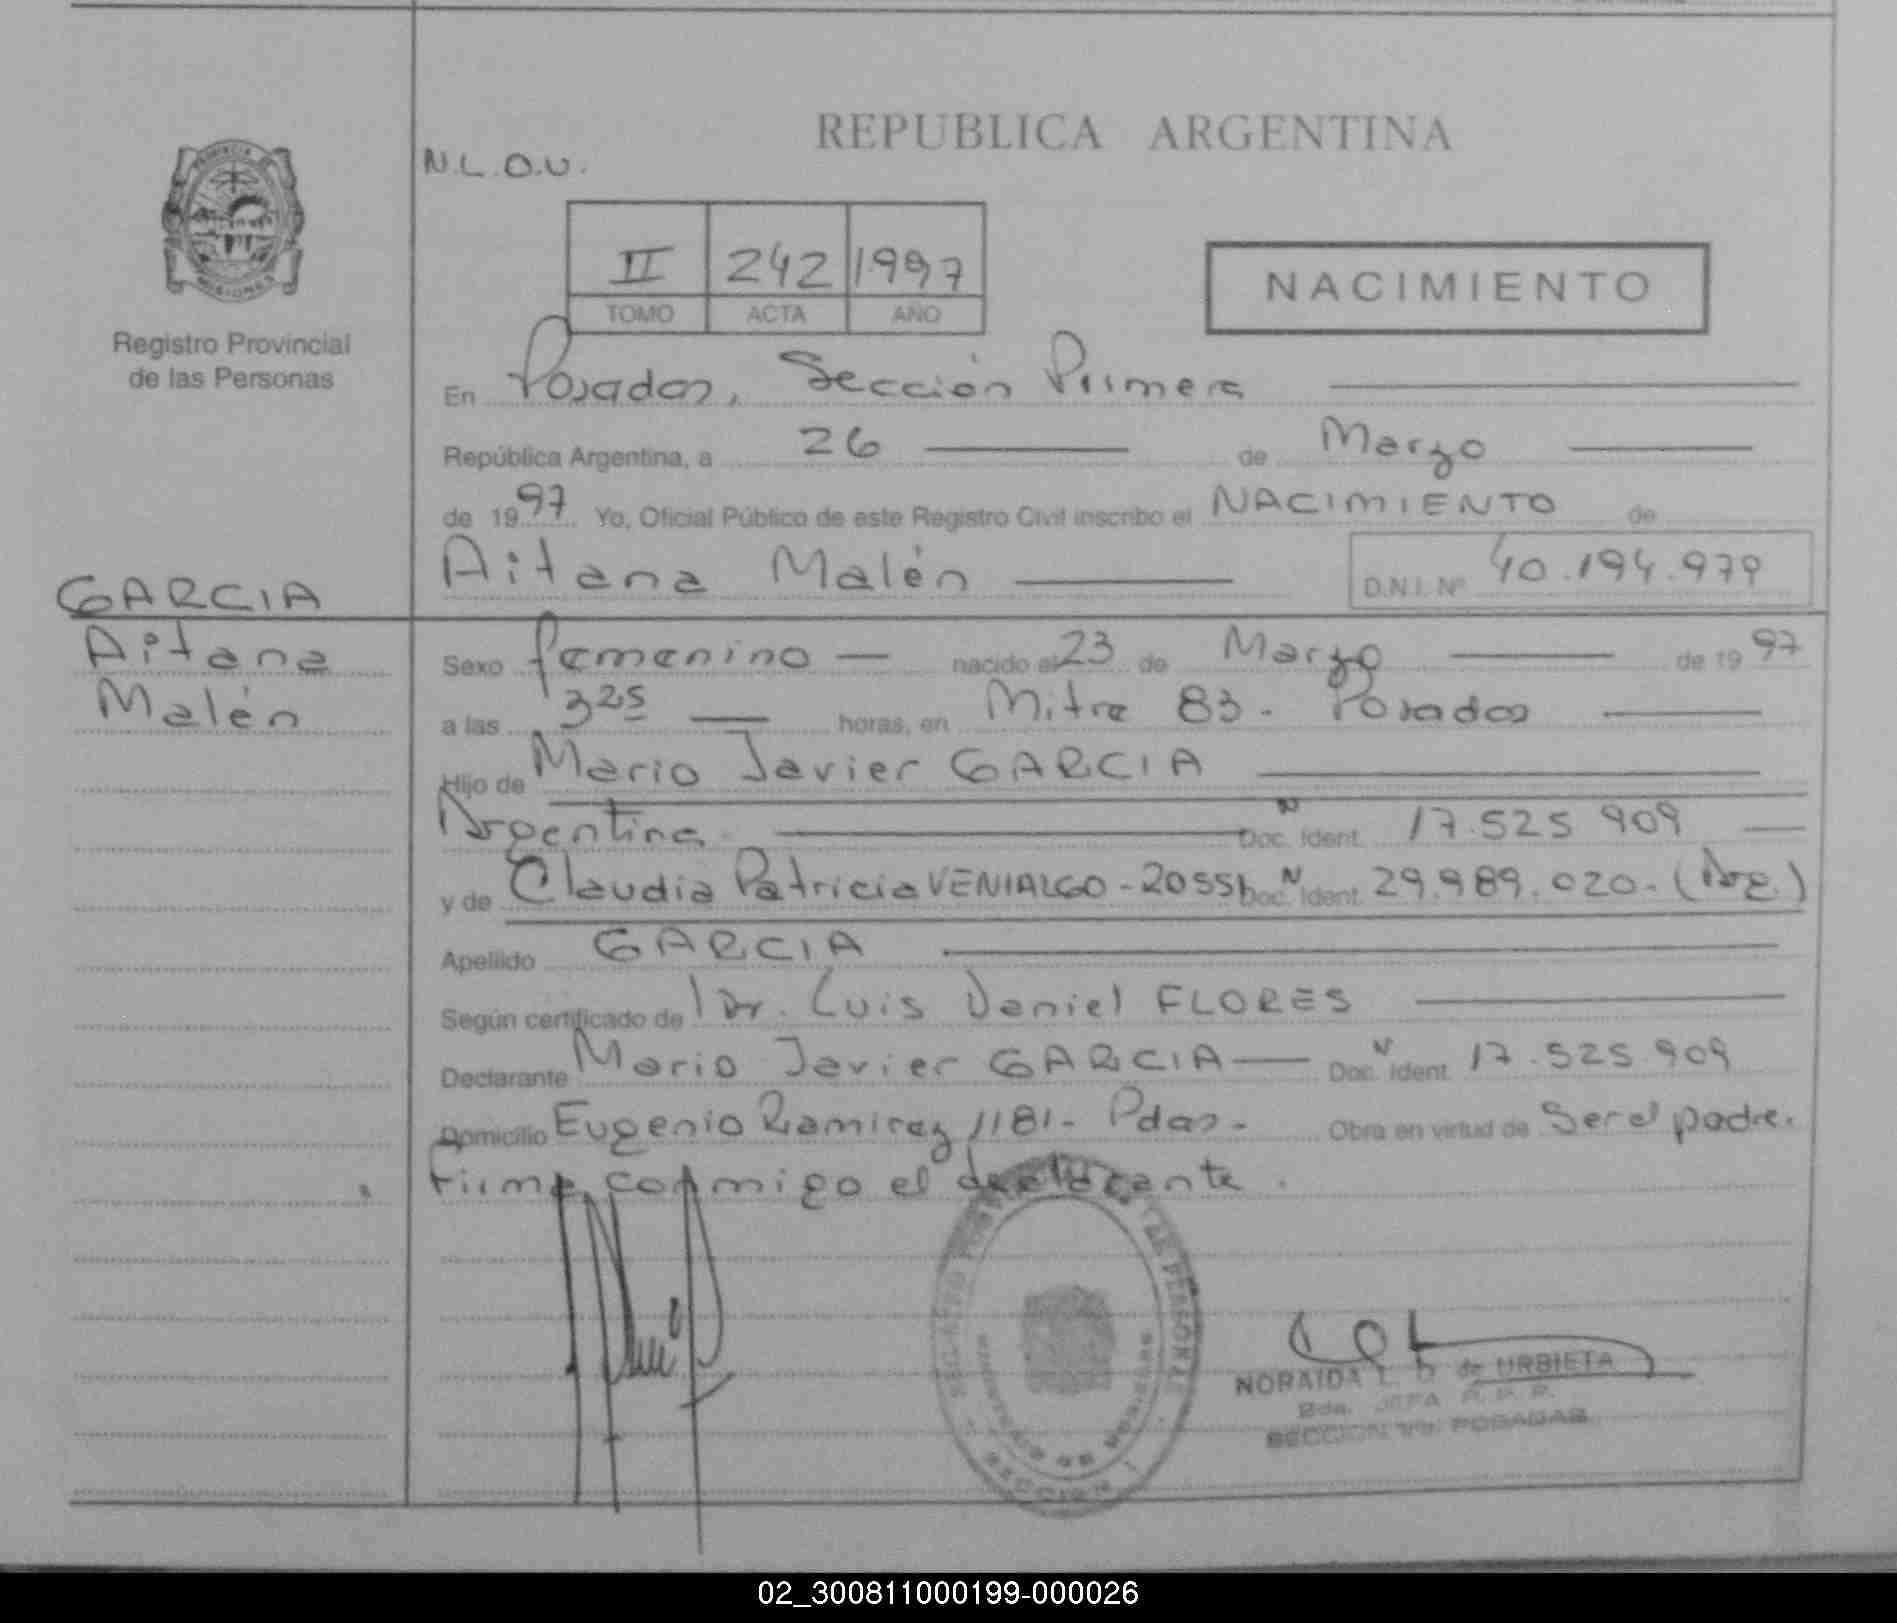 REPUBLICA ARGENTINA
N.L.O.U.
PROVINCIA DE
MISIONES
II 242 1997
TOMO ACTA AÑO
NACIMIENTO
Registro Provincial
de las Personas
En Posadas, Sección Primera
República Argentina, a 26 de Marzo
de 1997 Yo, Oficial Público de este Registro Civil inscribo el NACIMIENTO de
Aitana Malén D.N.I. Nº 40.194.979
GARCIA
Aitana
Malén
Sexo femenino nacido el 23 de Marzo de 1997
a las 3 25 horas, en Mitre 83. Posadas
Hijo de Mario Javier GARCIA
Argentina Doc. Ident. 17.525.909
y de Claudia Patricia VENIALGO - 20 Doc. Ident. 29.989.020. (Arg.)
Apellido GARCIA
Según certificado de Dr. Luis Daniel FLORES
Declarante Mario Javier GARCIA Doc. Ident. 17.525.909
Domicilio Eugenio Ramirez 1181- Pdas. Obra en virtud de Ser el padre.
Firma conmigo el declarante.
NORAIDA L. de URBIETA
2da. JEFA R.P.P.
SECCION 1ra. POSADAS
SECCION 1
02_300811000199-000026